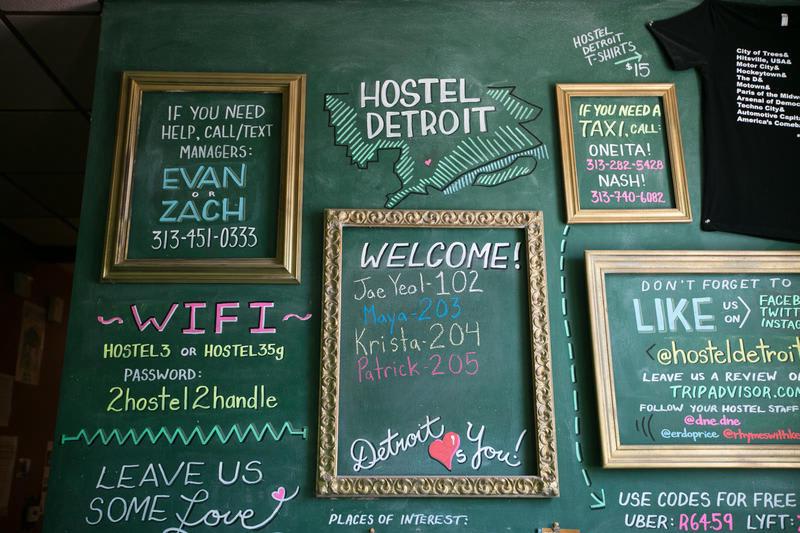 HOSTEL
DETROIT
T-SHIRTS
$15
City of Trees&
Hitsville, USA&
Motor City&
Hockeytown&
The D&
Motown&
Paris of the Midw
Arsenal of Democ
Techno City&
Automotive Capit
America's Comeb
IF YOU NEED
HELP, CALL/TEXT
MANAGERS:
EVAN
OR
ZACH
313-451-0333
HOSTEL
DETROIT
IF YOU NEED A
TAXI, CALL:
ONEITA!
313-282-5428
NASH!
313-740-6082
WELCOME!
Jae Yeol-102
Maya-203
Krista-204
Patrick-205
Detroit
's You!
~WIFI~
HOSTEL3 OR HOSTEL35g
PASSWORD:
2hostel2handle
LEAVE US
SOME Love
DON'T FORGET TO
LIKE US ON> FACEB
TWITT
INSTAG
@hosteldetroit
LEAVE US A REVIEW O
TRIPADVISOR.CO
FOLLOW YOUR HOSTEL STAFF
@dne.dne
@erdoprice @rhymeswithke
PLACES OF INTEREST:
USE CODES FOR FREE
UBER: R6459 LYFT: